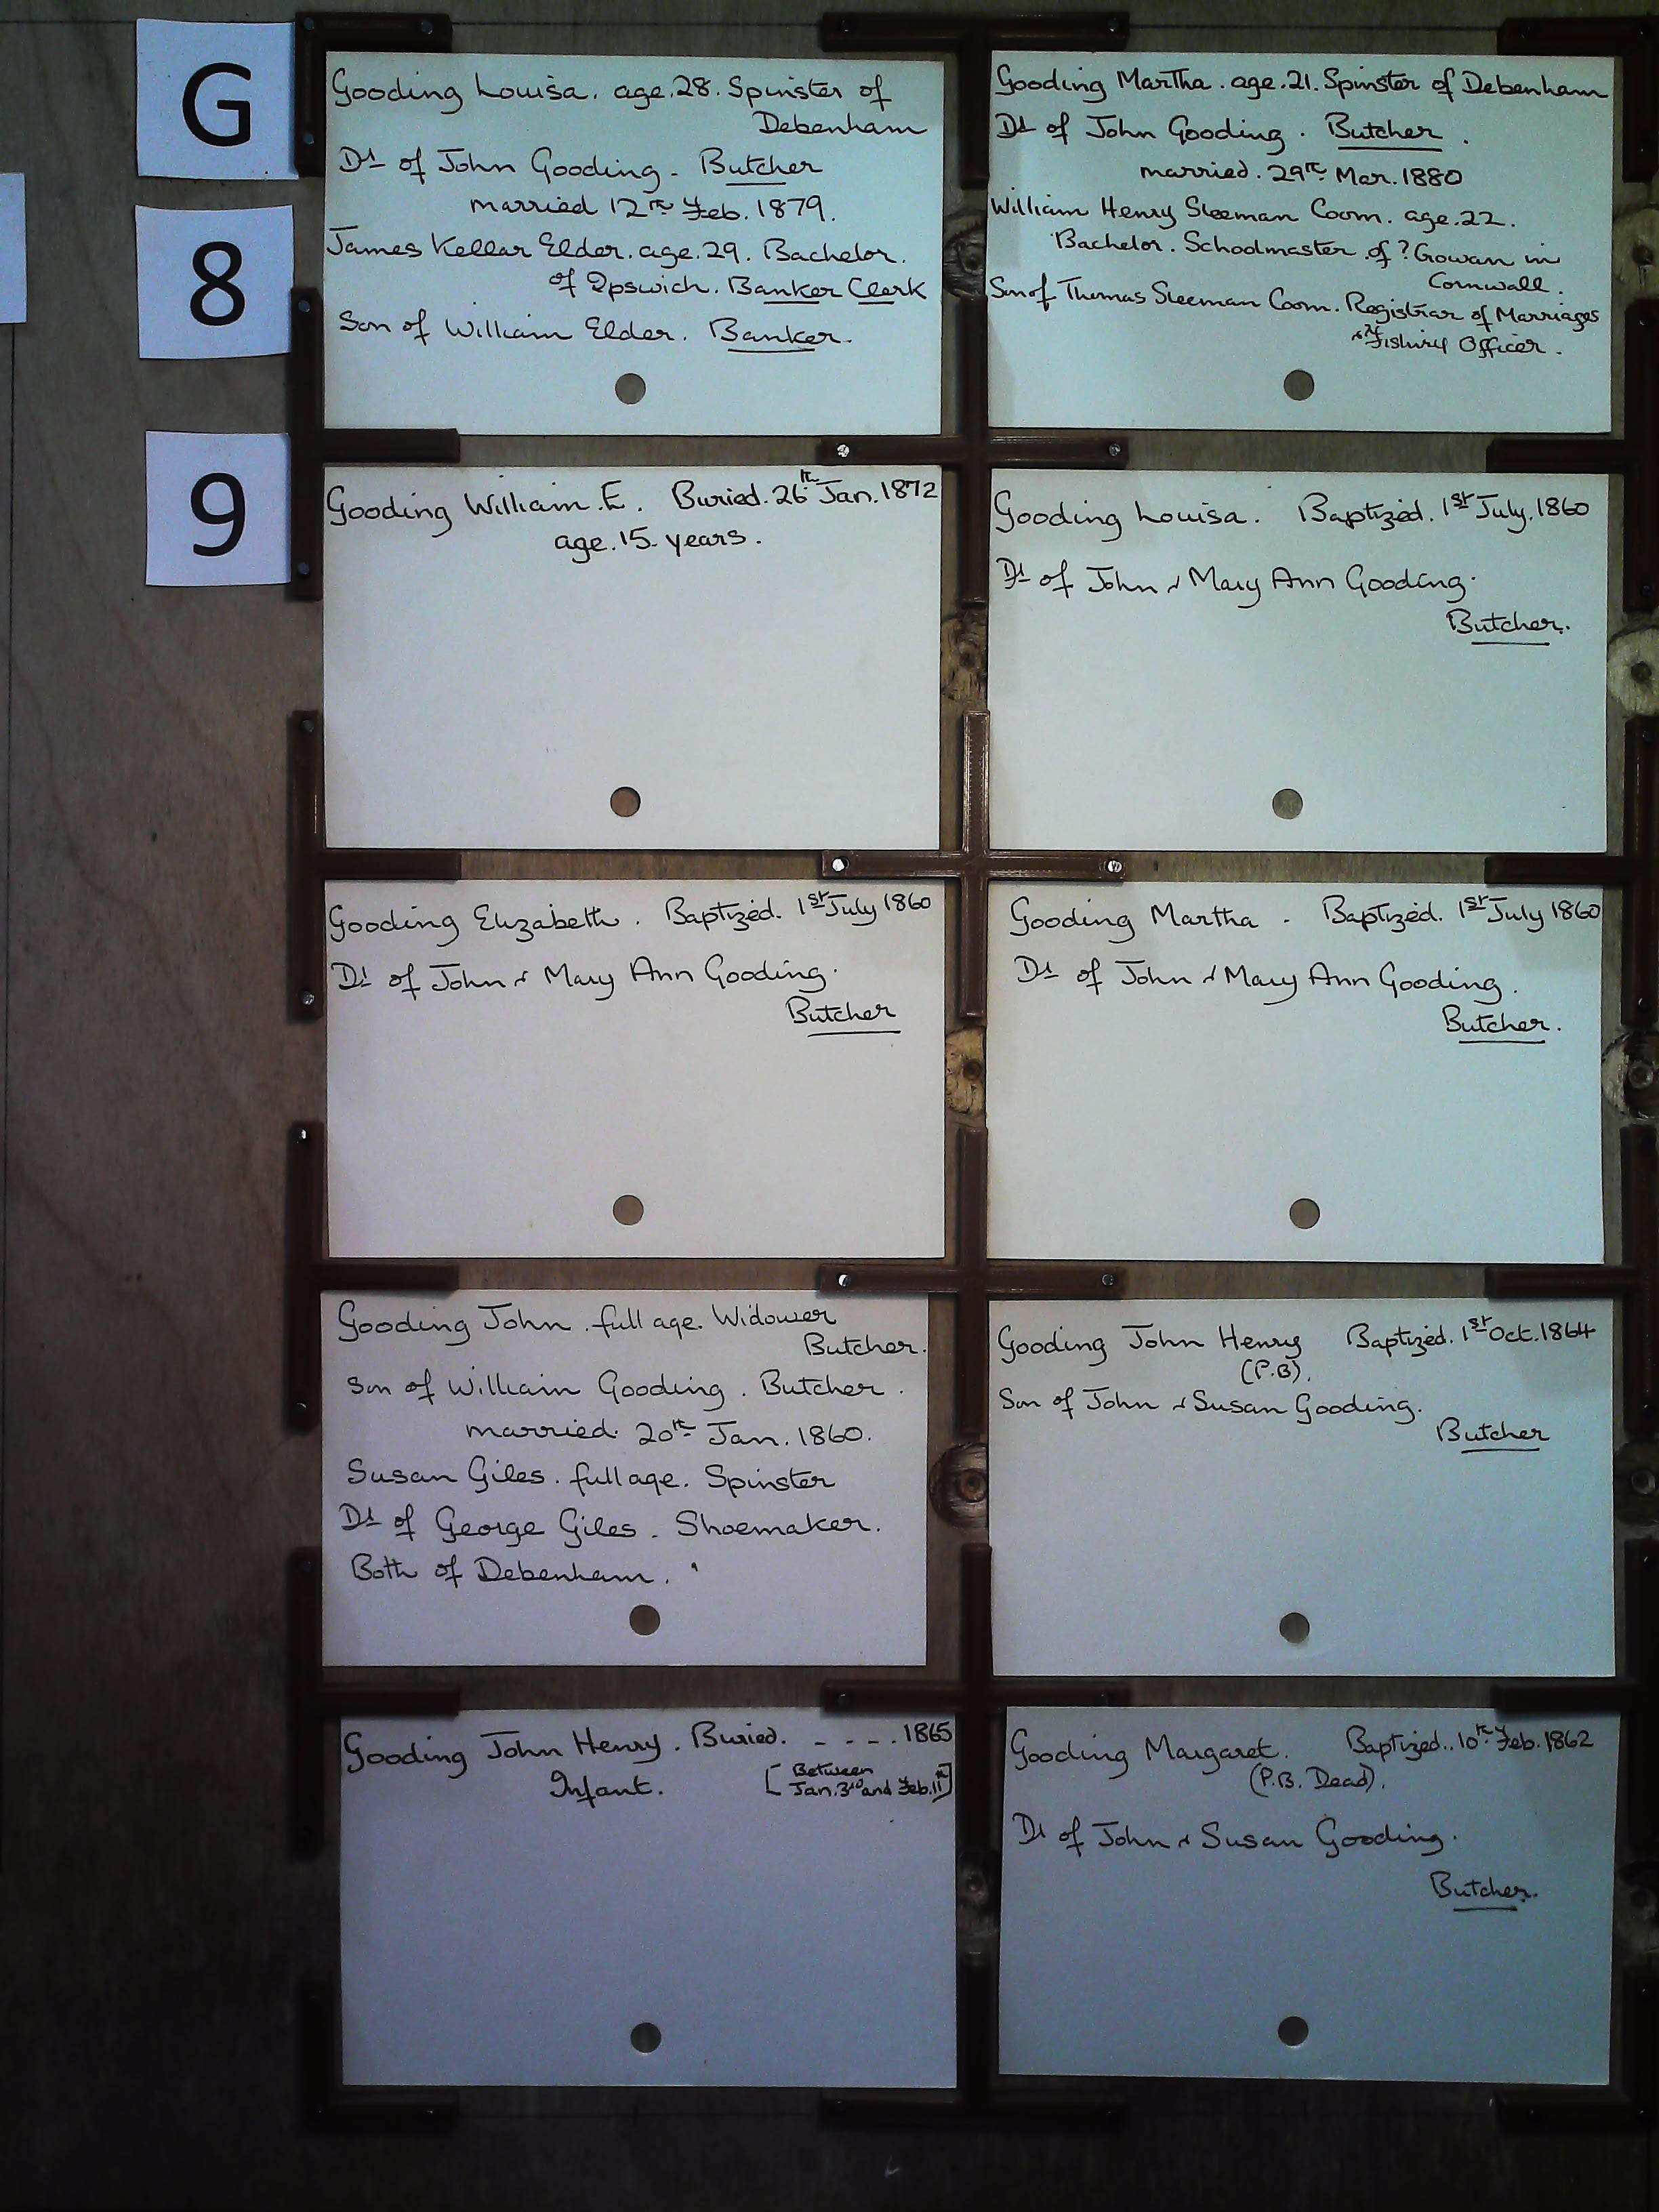 G
8
9
Gooding Louisa. age.28. Spinster of
Debenham
Dt of John Gooding - Butcher
married 12th Feb. 1879.
James Kellar Elder. age.29. Bachelor.
of Ipswich. Banker Clerk
Son of William Elder. Banker.
Gooding Martha. age.21. Spinster of Debenham
Dt of John Gooding. Butcher.
married. 29th Mar. 1880
William Henry Sleeman Coom. age.22.
Bachelor. Schoolmaster of ? Gowan in
Cornwall.
Son of Thomas Sleeman Coom. Registrar of Marriages
& Fishing Officer.
Gooding William. E. Buried. 26th Jan. 1872
age. 15 years.
Gooding Louisa. Baptized. 1st July. 1860
Dt of John & Mary Ann Gooding.
Butcher.
Gooding Elizabeth. Baptized. 1st July 1860
Dt of John & Mary Ann Gooding.
Butcher
Gooding Martha - Baptized. 1st July 1860
Dt of John & Mary Ann Gooding.
Butcher.
Gooding John. full age. Widower
Butcher.
Son of William Gooding. Butcher.
married. 20th Jan. 1860.
Susan Giles. full age. Spinster
Dt of George Giles. Shoemaker.
Both of Debenham.
Gooding John Henry Baptized. 1st Oct. 1864
(P.B).
Son of John & Susan Gooding.
Butcher
Gooding John Henry. Buried. - - - . 1865
Infant. [Between
Jan. 3rd and Feb. 11th]
Gooding Margaret. Baptized.. 10th Feb. 1862
(P.B. Dead).
Dt of John & Susan Gooding.
Butcher.